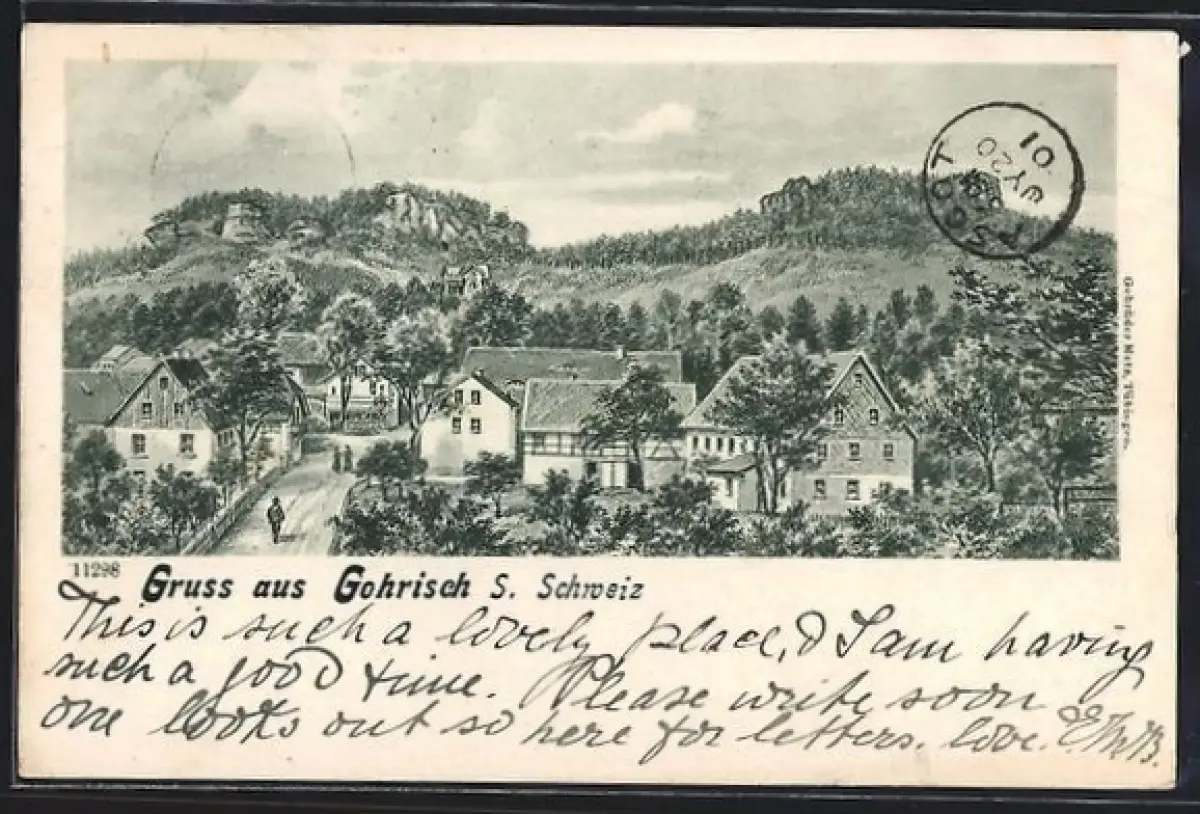 ASCOT
JY 20
01
Gebrüder Metz, Tübingen.
11298 Gruss aus Gohrisch S. Schweiz
This is such a lovely place, & I am having
such a good time. Please write soon
one looks out so here for letters. love.